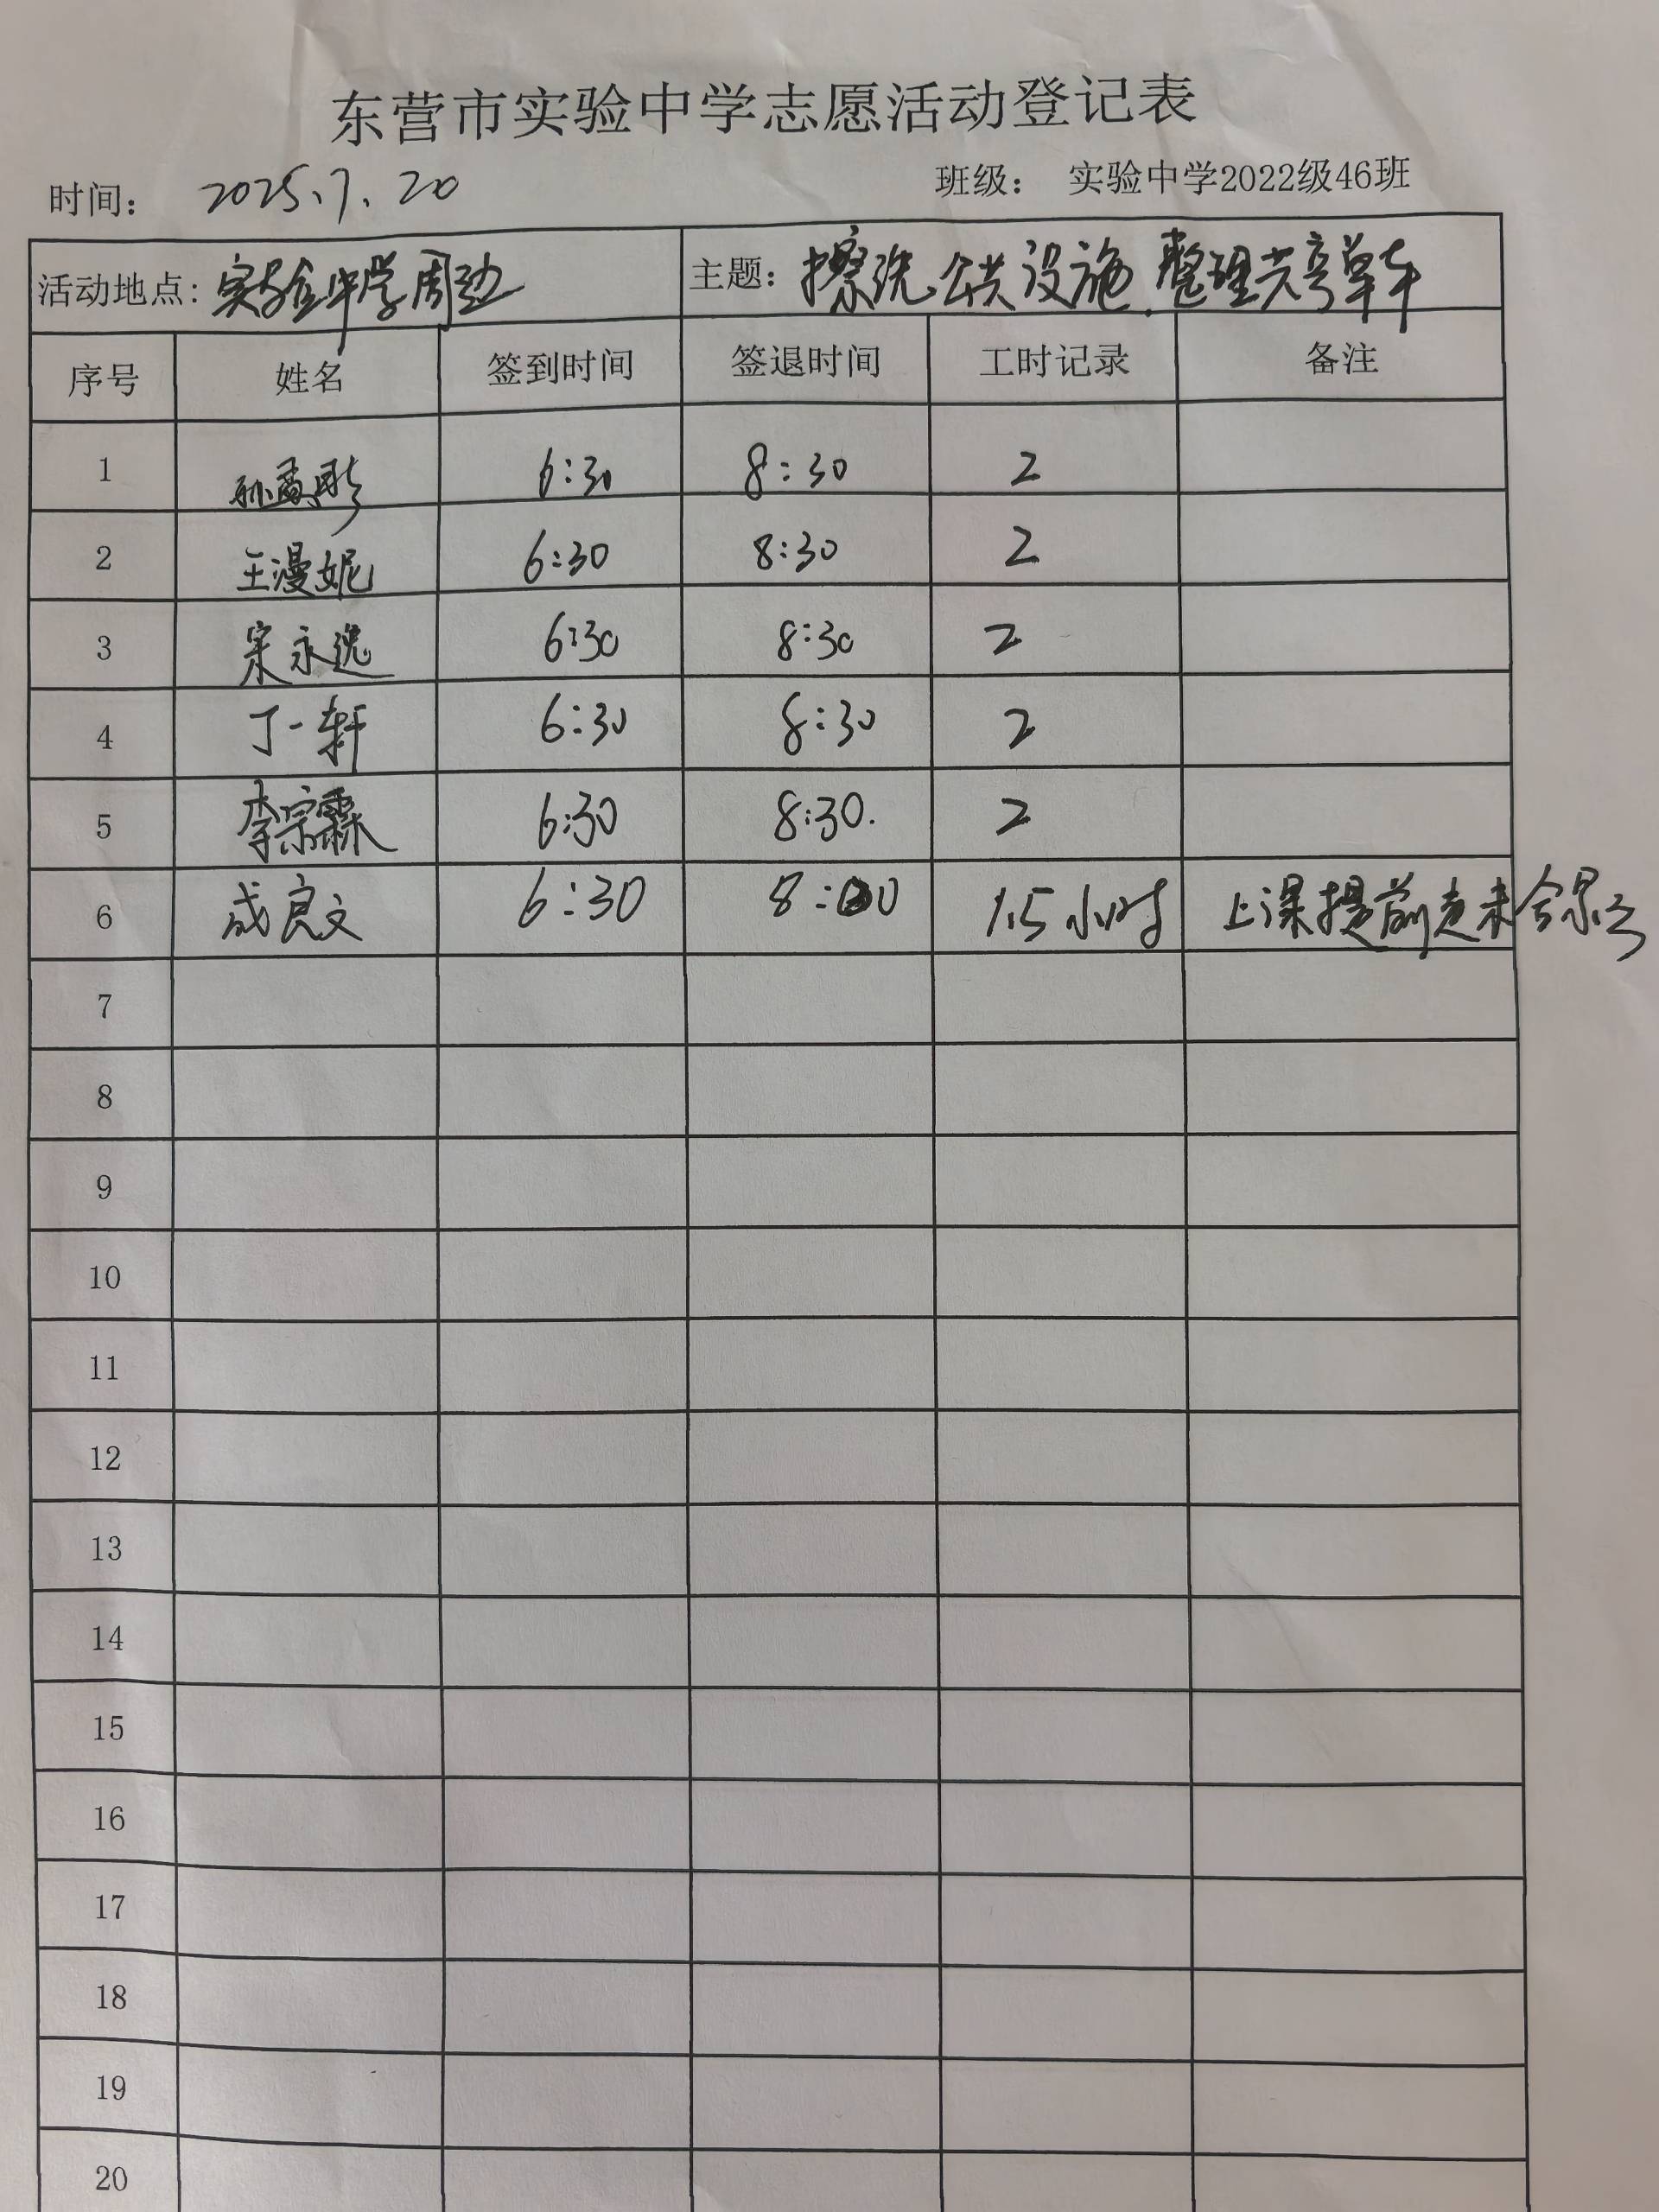 东营市实验中学志愿活动登记表
时间： 2025.7.20 班级： 实验中学2022级46班
活动地点: 实验中学周边 主题: 擦洗公共设施.整理共享单车
序号 姓名 签到时间 签退时间 工时记录 备注
1 6:30 8:30 2
2 王漫妮 6:30 8:30 2
3 宋永逸 6:30 8:30 2
4 丁一轩 6:30 8:30 2
5 李宗霖 6:30 8:30. 2
6 成良文 6:30 8:00 1.5小时 上课提前走未合影
7
8
9
10
11
12
13
14
15
16
17
18
19
20